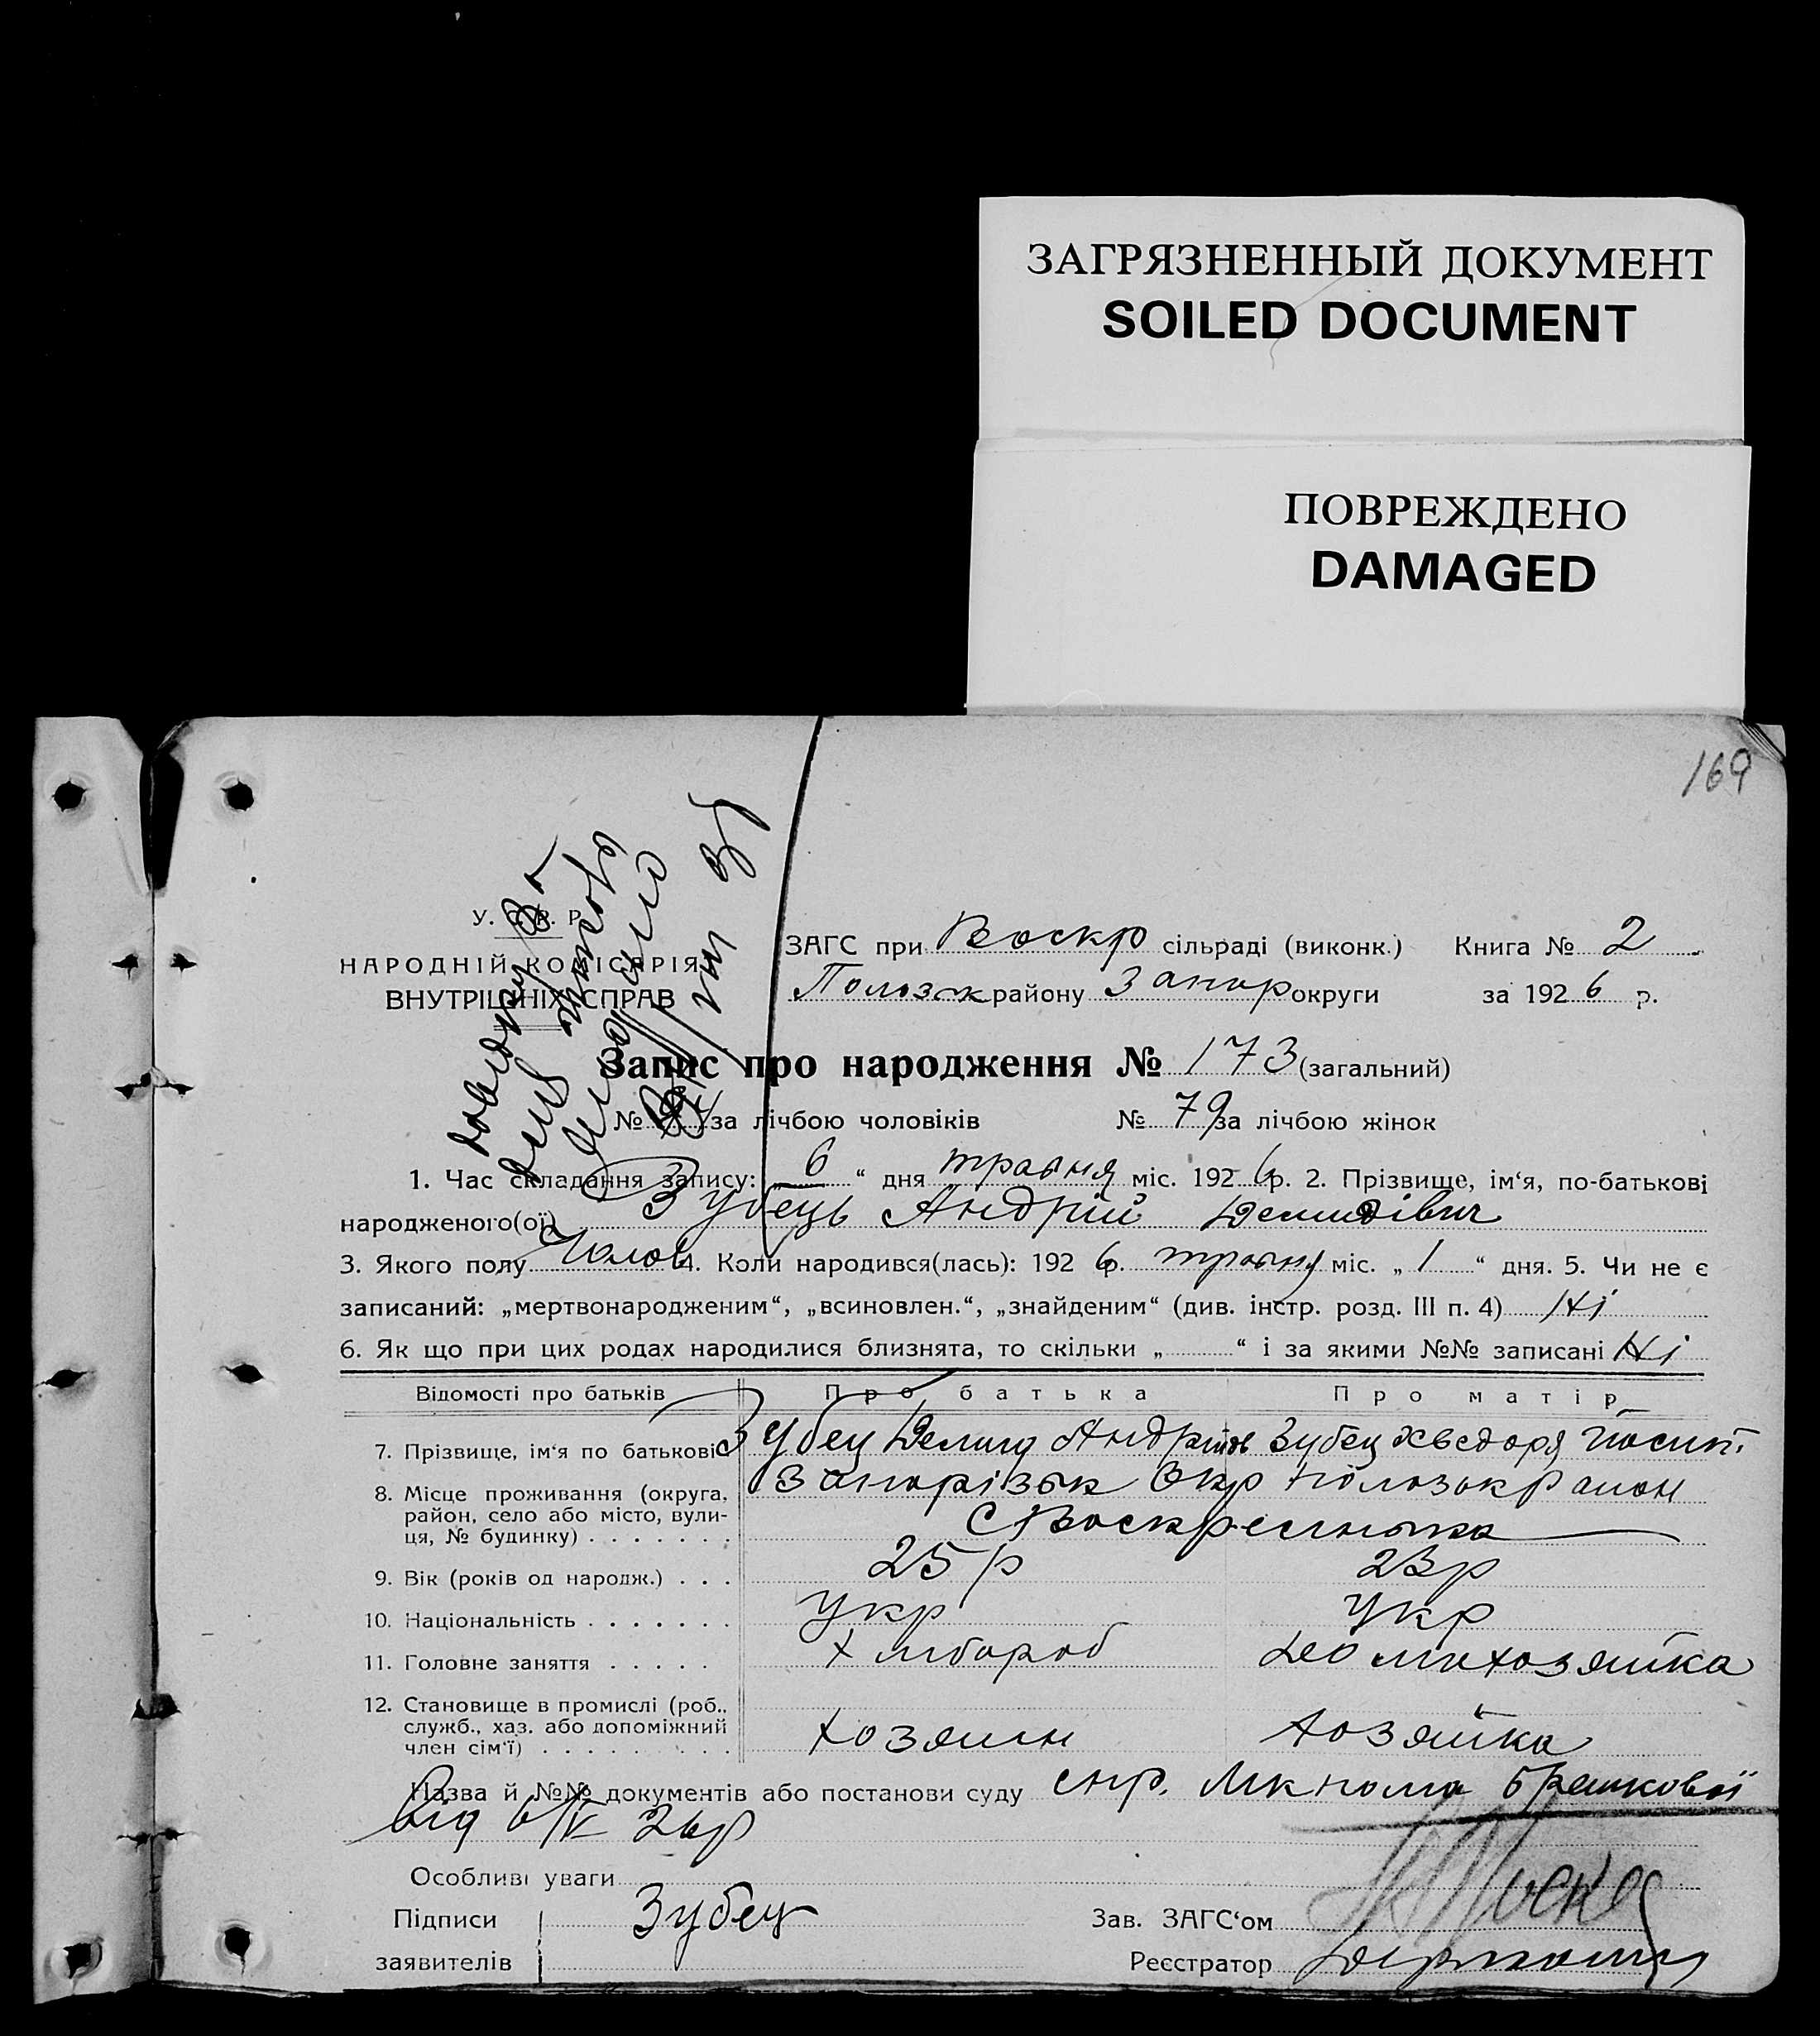 ЗАГРЯЗНЕННЫЙ ДОКУМЕНТ
SOILED DOCUMENT
ПОВРЕЖДЕНО
DAMAGED
169
У. С. Р. Р.
НАРОДНІЙ КОМІСАРІЯ
ВНУТРІШНІХ СПРАВ
ЗАГС при Воскр сільраді (виконк.) Книга № 2
Полозьк району Запор округи за 1926 р.
Запис про народження № 173 (загальний)
№ за лічбою чоловіків № 79 за лічбою жінок
1. Час складання запису: „6“ дня травня міс. 1926 р. 2. Прізвище, ім‘я, по-батькові
народженого(ої) Зубець Андрій Демидівич
3. Якого полу Чолов 4. Коли народився(лась): 1926 р. травня міс. „1“ дня. 5. Чи не є
записаний: „мертвонародженим“, „всиновлен.“, „знайденим“ (див. інстр. розд. III п. 4) Ні
6. Як що при цих родах народилися близнята, то скільки „ “ і за якими №№ записані Ні
Відомості про батьків Про батька Про матір
7. Прізвище, ім‘я по батькові Зубец Демид Андрійов Зубец Хведоря Йосип.
8. Місце проживання (округа, Запорізьк Окр Полозькр айон
район, село або місто, вули-
ця, № будинку) . . . . . . . С Воскресенька
9. Вік (років од народж.) . . . 25 р 23 р
10. Національність . . . . . . . Укр Укр
11. Головне заняття . . . . . Хлібороб Домохозяйка
12. Становище в промислі (роб.,
служб., хаз. або допоміжний
член сім‘ї) . . . . . . . . . хозяин хозяйка
Назва й №№ документів або постанови суду спр.
від 6/V 26 р
Особливі уваги
Підписи Зубец Зав. ЗАГС‘ом
заявителів Реєстратор